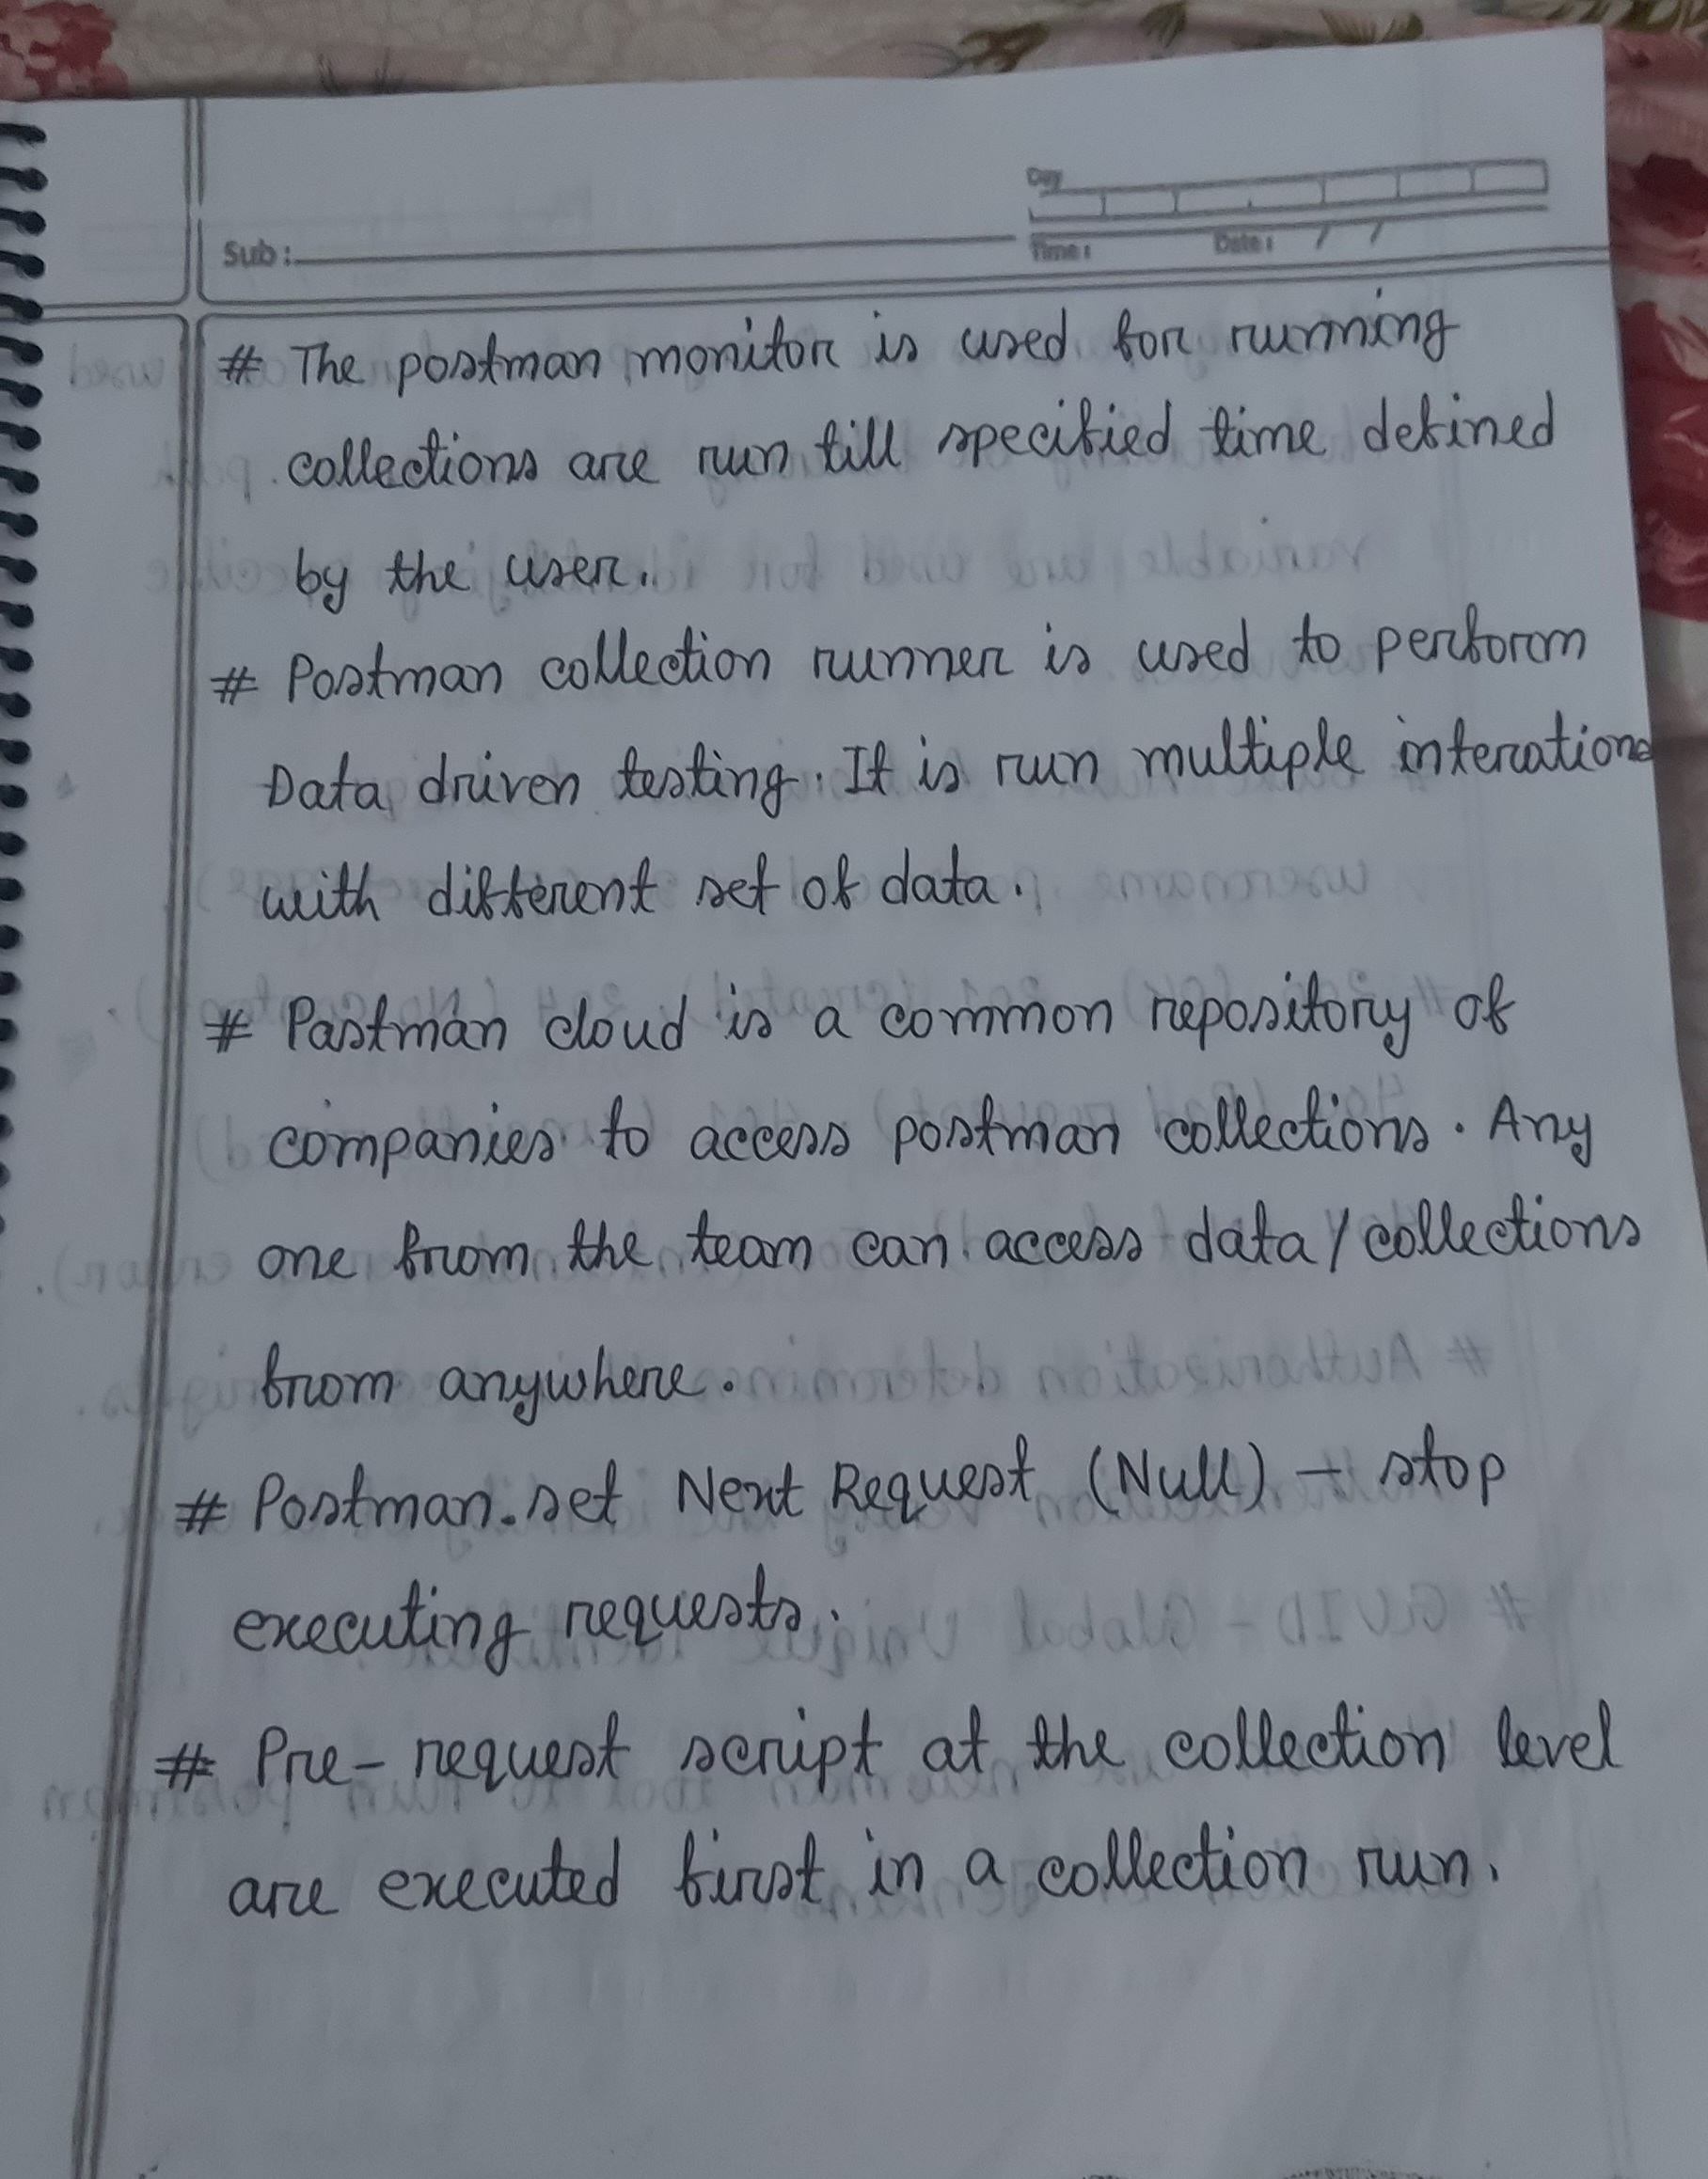 Day
Sub :
Time : Date : / /
# The postman monitor is used for running
collections are run till specified time defined
by the user.
# Postman collection runner is used to perform
Data driven testing. It is run multiple interations
with different set of data.
# Pastman cloud is a common repository of
companies to access postman collections. Any
one from the team can access data/collections
from anywhere.
# Postman.set Next Request (Null) - stop
executing requests.
# Pre-request script at the collection level
are executed first in a collection run.